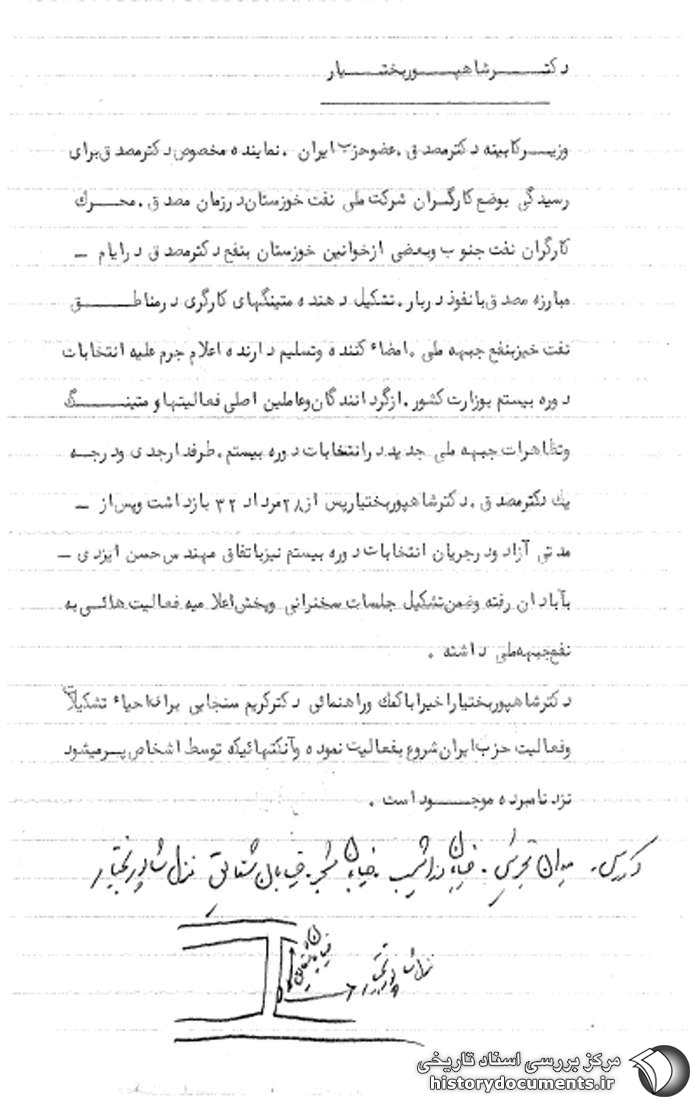 دکتر شاهپور بختیار
وزیر کابینه دکتر مصدق . عضو حزب ایران . نماینده مخصوص دکتر مصدق برای
رسیدگی بوضع کارگران شرکت ملی نفت خوزستان در زمان مصدق . محرك
کارگران نفت جنوب وبعضی از خوانین خوزستان بنفع دکتر مصدق در ایام –
مبارزه مصدق با نفوذ دربار . تشکیل دهنده متینگهای کارگری در مناطق
نفت خیز بنفع جبهه ملی . امضاء کننده وتسلیم دارنده اعلام جرم علیه انتخابات
دوره بیستم بوزارت کشور . ازگردانندگان وعاملین اصلی فعالیتها و متینگ
وتظاهرات جبهه ملی جدید در انتخابات دوره بیستم . طرفدار جدی ودرجه
یك دکتر مصدق . دکتر شاهپور بختیار پس از ۲۸ مرداد ۳۲ بازداشت وپس از –
مدتی آزاد ودر جریان انتخابات دوره بیستم نیز باتفاق مهندس حسن ایزدی –
بآبادان رفته وضمن تشکیل جلسات سخنرانی وپخش اعلامیه فعالیت هائی به
نفع جبهه ملی داشته .
دکتر شاهپور بختیار اخیرا باکمك وراهنمائی دکتر کریم سنجابی برای احیاء تشکیلات
وفعالیت حزب ایران شروع بفعالیت نموده وآنکتهائیکه توسط اشخاص پر میشود
نزد نامبرده موجود است .
آدرس . میدان تجریش . خیابان دزاشیب . خیابان . خیابان شقایق منزل شاپور بختیار
خیابان شقایق
منزل شاپور بختیار
مرکز بررسی اسناد تاریخی
historydocuments.ir